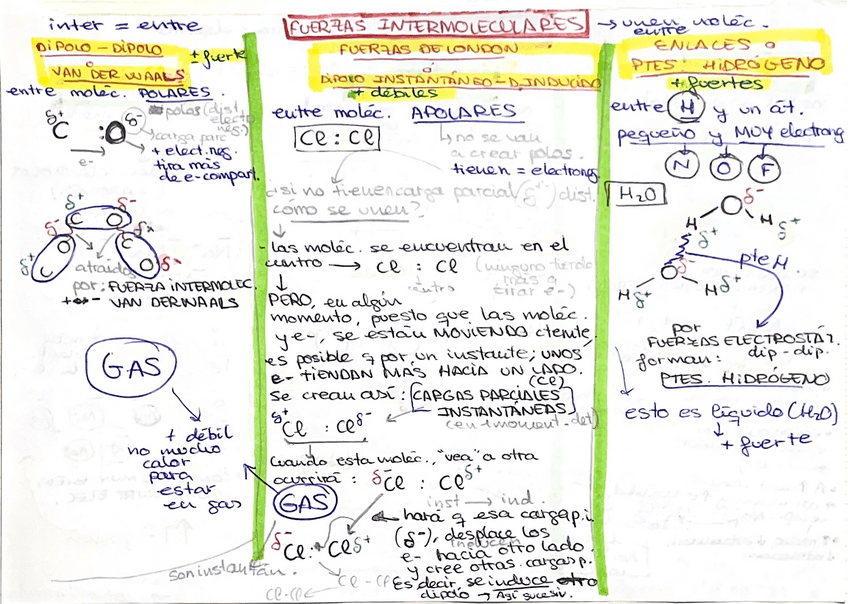 FUERZAS INTERMOLECULARES → unen moléc.
entre
inter = entre
DIPOLO - DIPOLO
VAN DER WAALS
+ fuerte
entre moléc. POLARES.
polos (dist. electroneg.)
δ+ C : O δ-
carga parc
+ elect. neg.
tira más
de e- compart.
e-
δ+ δ-
C O
δ- δ+
O C
C O
δ+ δ-
atraídos
por: FUERZA INTERMOLEC.
+ ●- VAN DER WAALS
GAS
+ débil
no mucho
calor
para
estar
en gas
FUERZAS DE LONDON
o
DIPOLO INSTANTÁNEO - D. INDUCIDO
+ débiles
entre moléc. APOLARES
Cl : Cl
no se van
a crear polos.
tienen = electroneg.
¿si no tienen carga parcial (δ+-) dist.
cómo se unen?
- las moléc. se encuentran en el
centro → Cl : Cl (ninguno tiende
más a
tirar e-)
centro
PERO, en algún
momento, puesto que las moléc.
y e-, se están MOVIENDO ctente,
es posible q por un instante; UNOS
e- TIENDAN MÁS HACIA UN LADO.
(Cl)
Se crean así: CARGAS PARCIALES
INSTANTÁNEAS
(en 1 moment. det)
δ+ Cl : Cl δ-
Cuando esta moléc. "vea" a otra
ocurrirá: δ- Cl : Cl δ+
GAS
inst → ind.
hará q esa carga p. i
(δ-), desplace los
inducen
e- hacia otro lado.
y cree otras cargas p.
Es decir, se induce otro
dipolo → Así sucesiv.
δ- Cl : Cl δ+
son instantán.
Cl - Cl
Cl - Cl
ENLACES o
PTES. HIDRÓGENO
+ fuertes
entre H y un át.
pequeño y MUY electroneg
N O F
H2O
O δ-
H H δ+
δ+
δ-
O
pte H.
H δ+ H δ+
por
FUERZAS ELECTROSTÁT.
forman: dip - dip.
PTES. HIDRÓGENO
esto es líquido (H2O)
↓
+ fuerte